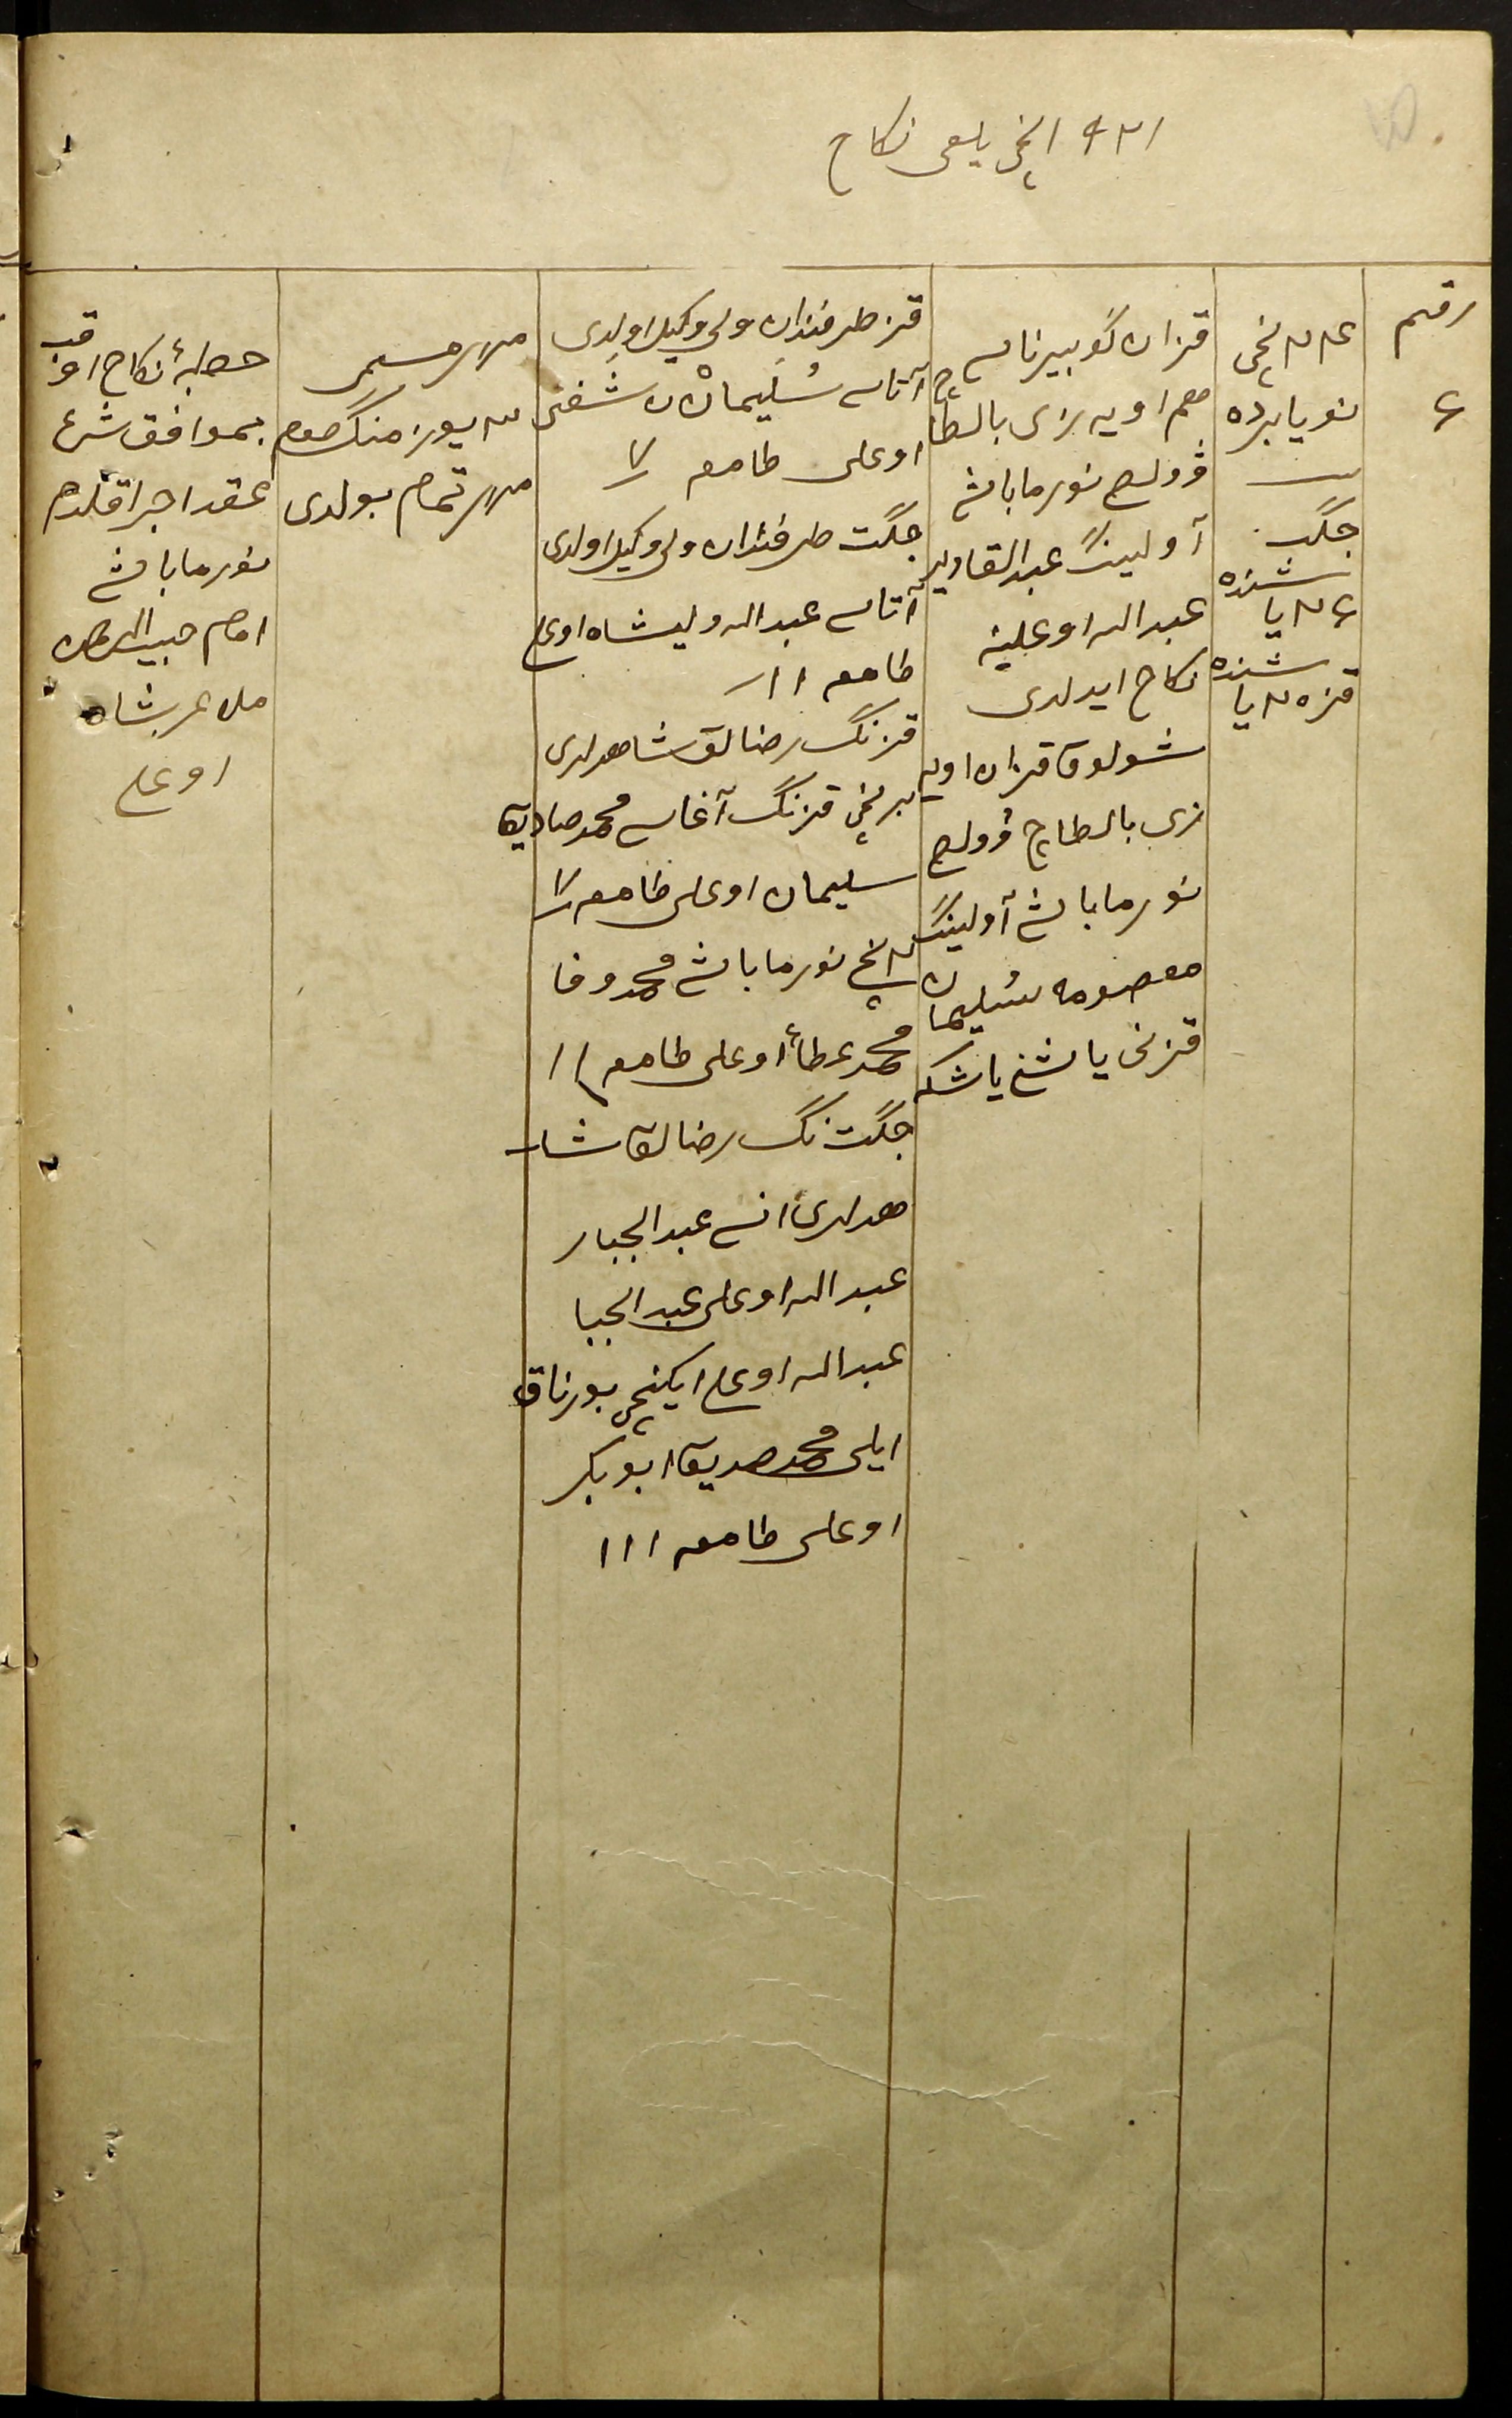 ١٩٢١ انچی یلعی نکاح
رقم
۶
۲۴ نچی
نویابرده
جگت
۲۴ یا
شنده
قز ۲۵ یا
شنده
قزان گوبیرناسی
صم اویه زی بالطاچ
ڤولص نورما باش
آولینگ عبدالقادیر
عبدالله اوعلینه
نکاح ایدلدی
شولوق قزان اویه
زی بالطاچ ڤولص
نورما باش آولینگ
معصومه سُلیمان
قزنی یاشنی یاشکه
قز طرفندان ولی وکیل اولدی
آتاسی سُلیمان شفی
اوعلی طامعه
جگت طرفندان ولی وکیل اولدی
آتاسی عبدالله ولیشاه اوعلی
طامعه ١١
قزنگ رضالق شاهدلری
برنچی قزنگ آغاسی محمدصادیق
سلیمان اوعلی طامعه
۲ نچی نورما باش محمدوفا
محمدعطاء اوعلی طامعه
جگتنگ رضالق شا
هدلری انسی عبدالجبار
عبدالله اوعلی عبدالجبا
عبدالله اوعلی ایکنچی بورناق
ایلی محمدصدیق ابوبکر
اوعلی طامعه ١١١
مهر مسمی
یوز منگ صوم
مهر تمام بولدی
خطبهٔ نکاح اوقب
بموافق شرع
عقد اجرا قلدم
نورما باش
امام حبیب الرحمن
ملا عمرشاه
اوعلی